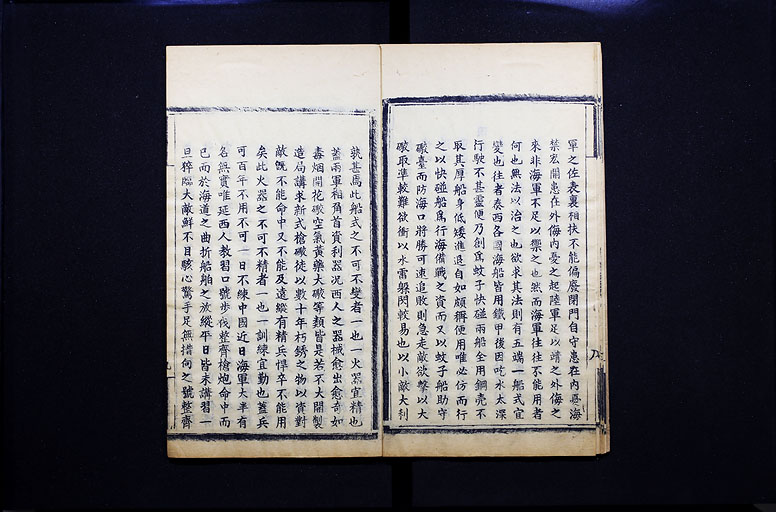 軍之佐表裏相扶不能偏廢閉門自守患在內憂海
禁宏開患在外侮內憂之起陸軍足以靖之外侮之
來非海軍不足以禦之也然而海軍往往不能用者
何也無法以治之也欲求其法則有五端一船式宜
變也往者泰西各國海船皆用鐵甲後因吃水太深
行駛不甚靈便乃創爲蚊子快碰兩船全用鋼売不
取其厚船身低矮進退自如頗稱便用唯必仿而行
之以快碰船爲行海備戰之資而又以蚊子船助守
礮臺而防海口將勝可速追敗則急走敵欲擊以大
礮取準較難欲衝以水雷躲閃較易也以小敵大利
孰甚焉此船式之不可不變者一也一火器宜精也
蓋兩軍相角首資利器况西人之器械愈出愈奇如
毒烟開花礮空氣黃藥大礮等類皆是若不大開製
造局講求新式槍礮徒以數十年朽銹之物以資對
敵旣不能命中又不能及遠縱有精兵悍卒不能用
矣此火器之不可不精者一也一訓練宜勤也蓋兵
可百年不用不可一日不練中國近日海軍大半有
名無實唯延西人教習口號步伐整齊槍炮命中而
已而於海道之曲折船舶之放縱平日皆未講習一
旦猝臨大敵鮮不目駭心驚手足無措向之號整齊